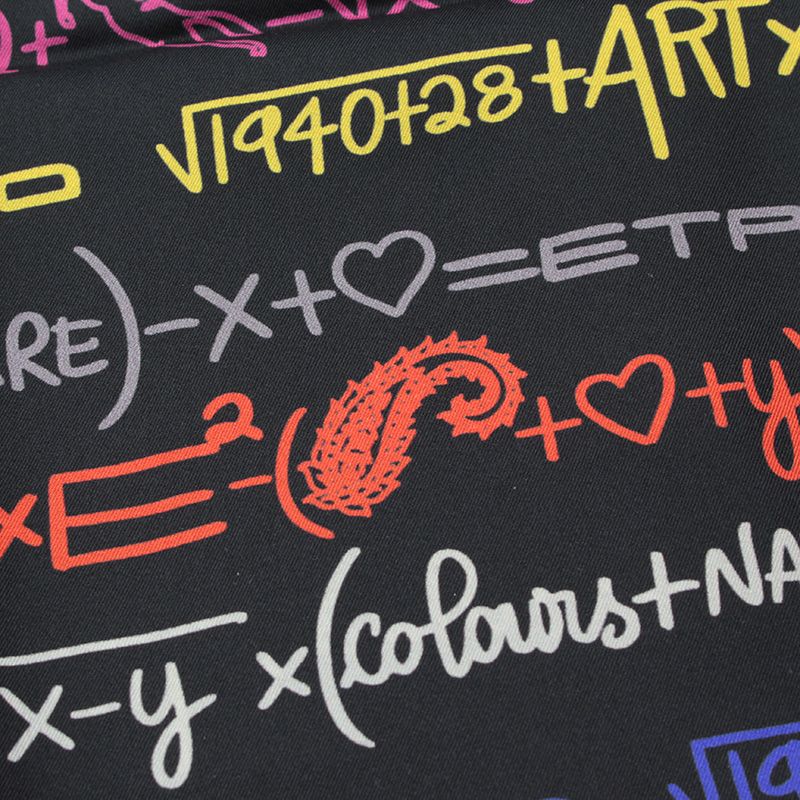 + - √x
√1940+28 + ART x
RE) - x + ♡ = ETR
x E² - ( + ♡ + y)
x - y x (colours + NA
√19